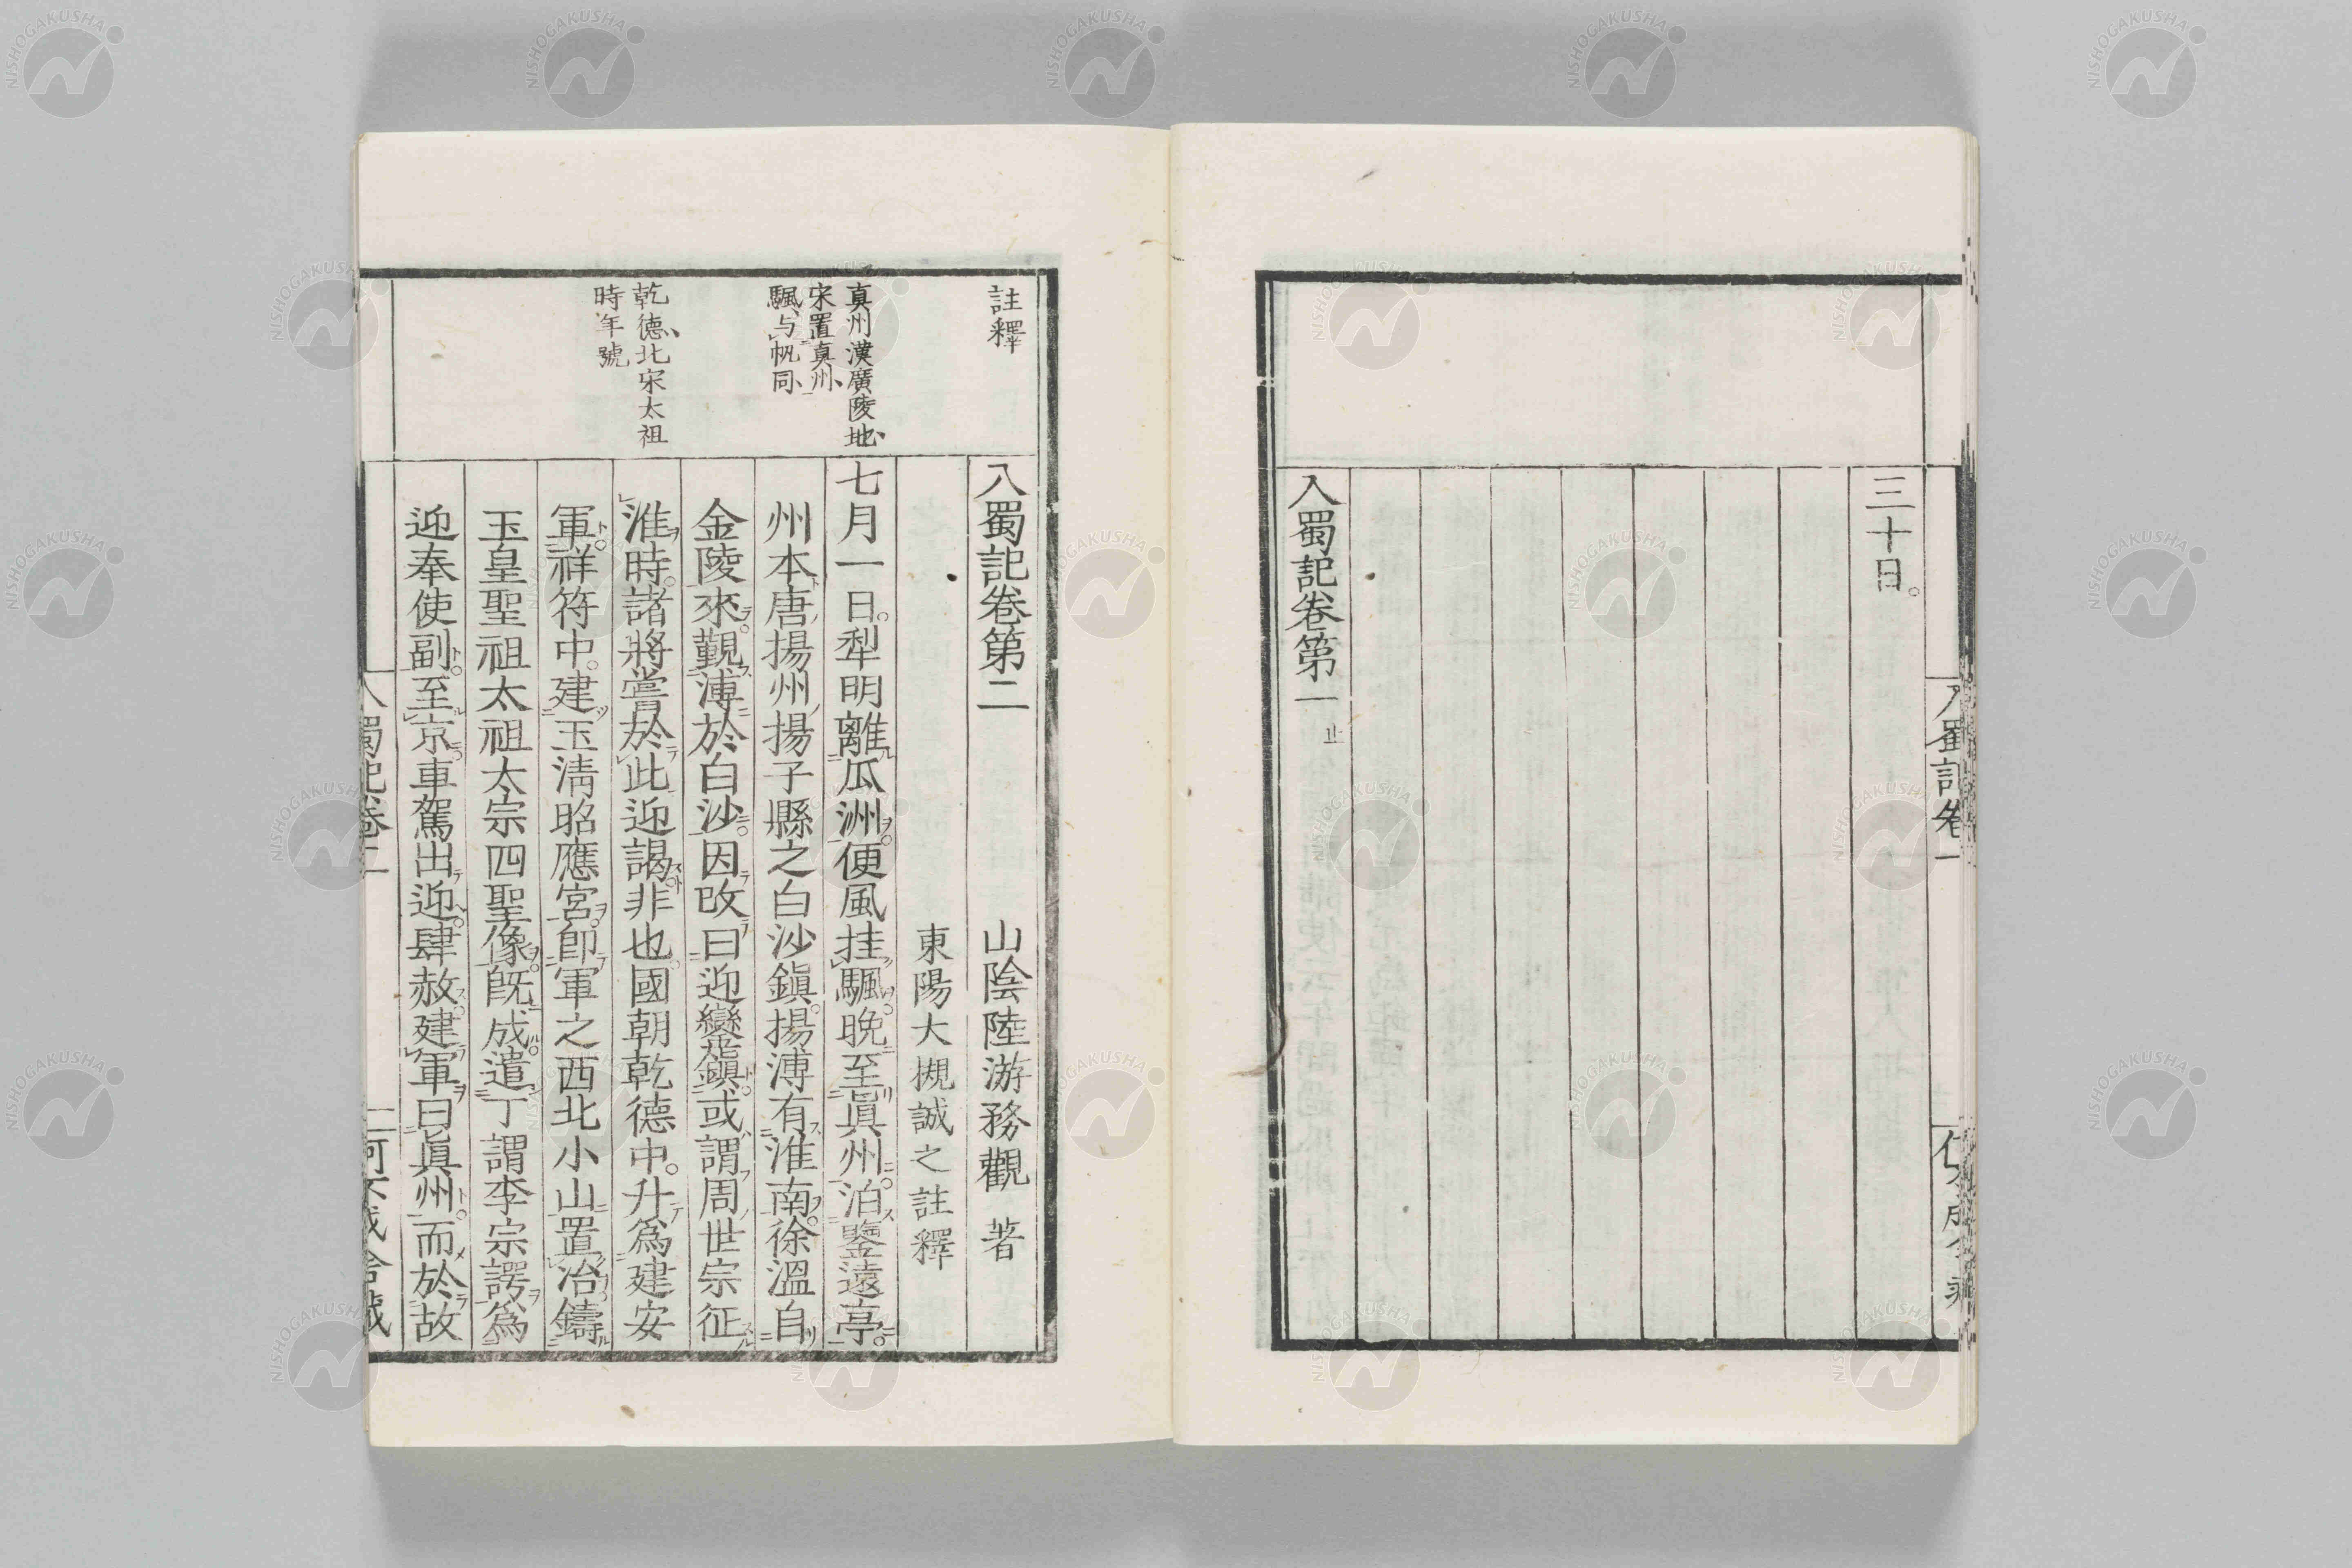 三十日。
入蜀記卷第一 止
入蜀記卷一
註釋
真州漢廣陵地
宋置真州
颿与帆同
乾德北宋太祖
時年號
入蜀記卷第二
山陰陸游務觀 著
東陽大槻誠之註釋
七月一日。犁明離瓜洲。便風挂颿。晚至眞州。泊鑒遠亭。
州本唐揚州揚子縣之白沙鎭。揚溥有淮南。徐溫自
金陵來覲溥於白沙。因改曰迎鑾鎭。或謂周世宗征
淮時。諸將嘗於此迎謁。非也。國朝乾德中。升爲建安
軍。祥符中。建玉淸昭應宮。卽軍之西北小山置冶鑄
玉皇聖祖太祖太宗四聖像。旣成。遣丁謂李宗諤爲
迎奉使副。至京。車駕出迎。肆赦。建軍曰眞州。而於故
入蜀記卷二
二
NISHOGAKUSHA